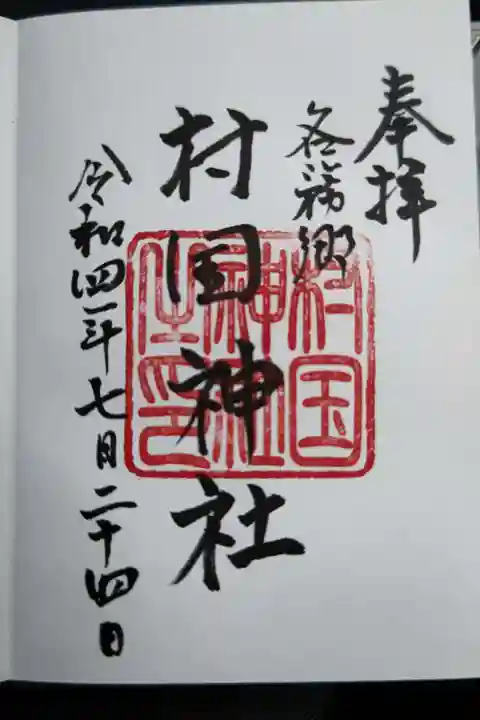 奉拝
各務郷
村国神社
村国
神社
之印
令和四年七月二十四日